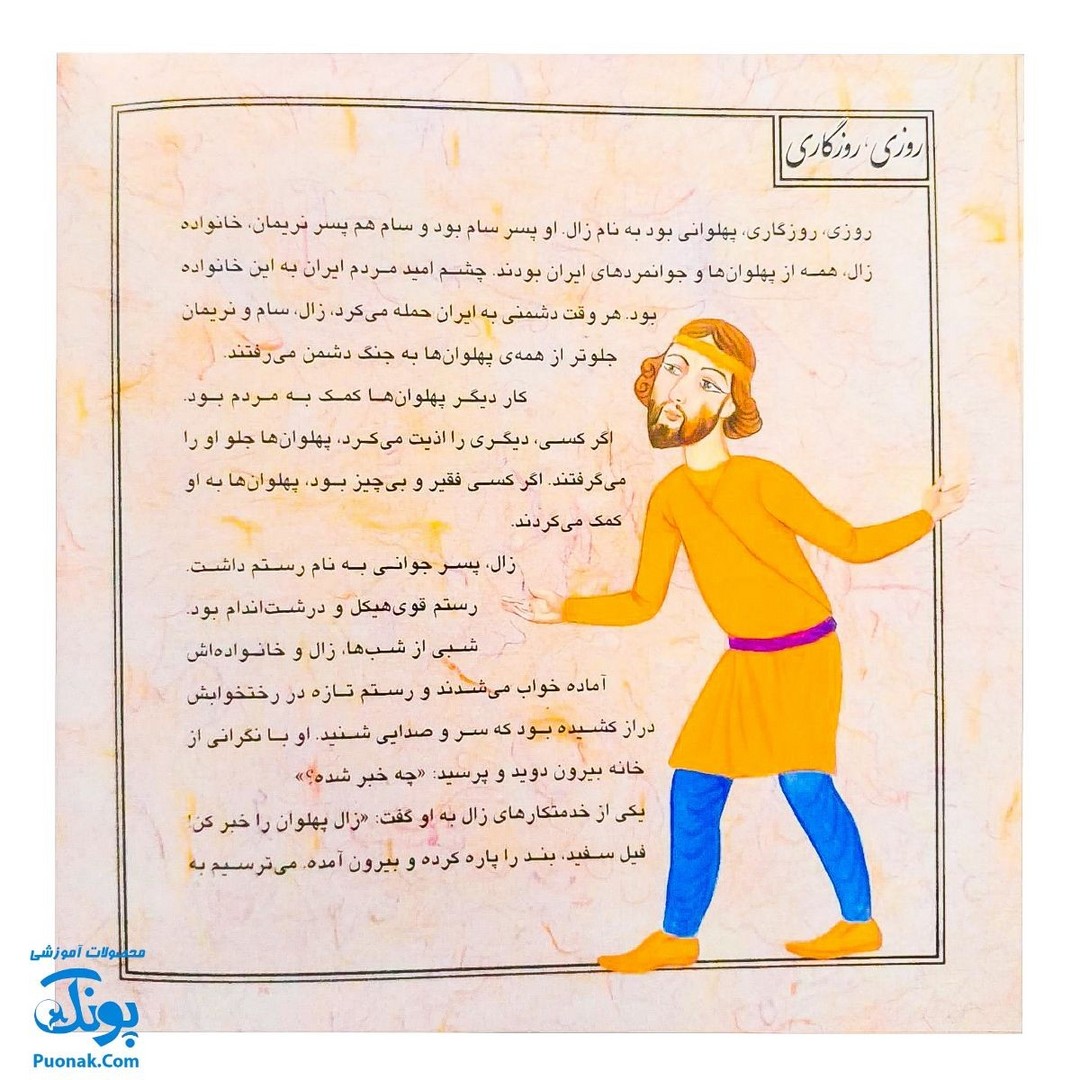 روزی، روزگاری
روزی، روزگاری، پهلوانی بود به نام زال. او پسر سام بود و سام هم پسر نریمان، خانواده
زال، همه از پهلوان‌ها و جوانمردهای ایران بودند. چشم امید مردم ایران به این خانواده
بود. هر وقت دشمنی به ایران حمله می‌کرد، زال، سام و نریمان
جلوتر از همه‌ی پهلوان‌ها به جنگ دشمن می‌رفتند.
کار دیگر پهلوان‌ها کمک به مردم بود.
اگر کسی، دیگری را اذیت می‌کرد، پهلوان‌ها جلو او را
می‌گرفتند. اگر کسی فقیر و بی‌چیز بود، پهلوان‌ها به او
کمک می‌کردند.
زال، پسر جوانی به نام رستم داشت.
رستم قوی‌هیکل و درشت‌اندام بود.
شبی از شب‌ها، زال و خانواده‌اش
آماده خواب می‌شدند و رستم تازه در رختخوابش
دراز کشیده بود که سر و صدایی شنید. او با نگرانی از
خانه بیرون دوید و پرسید: «چه خبر شده؟»
یکی از خدمتکارهای زال به او گفت: «زال پهلوان را خبر کن!
فیل سفید، بند را پاره کرده و بیرون آمده. می‌ترسیم به
محصولات آموزشی
پونک
Puonak.Com